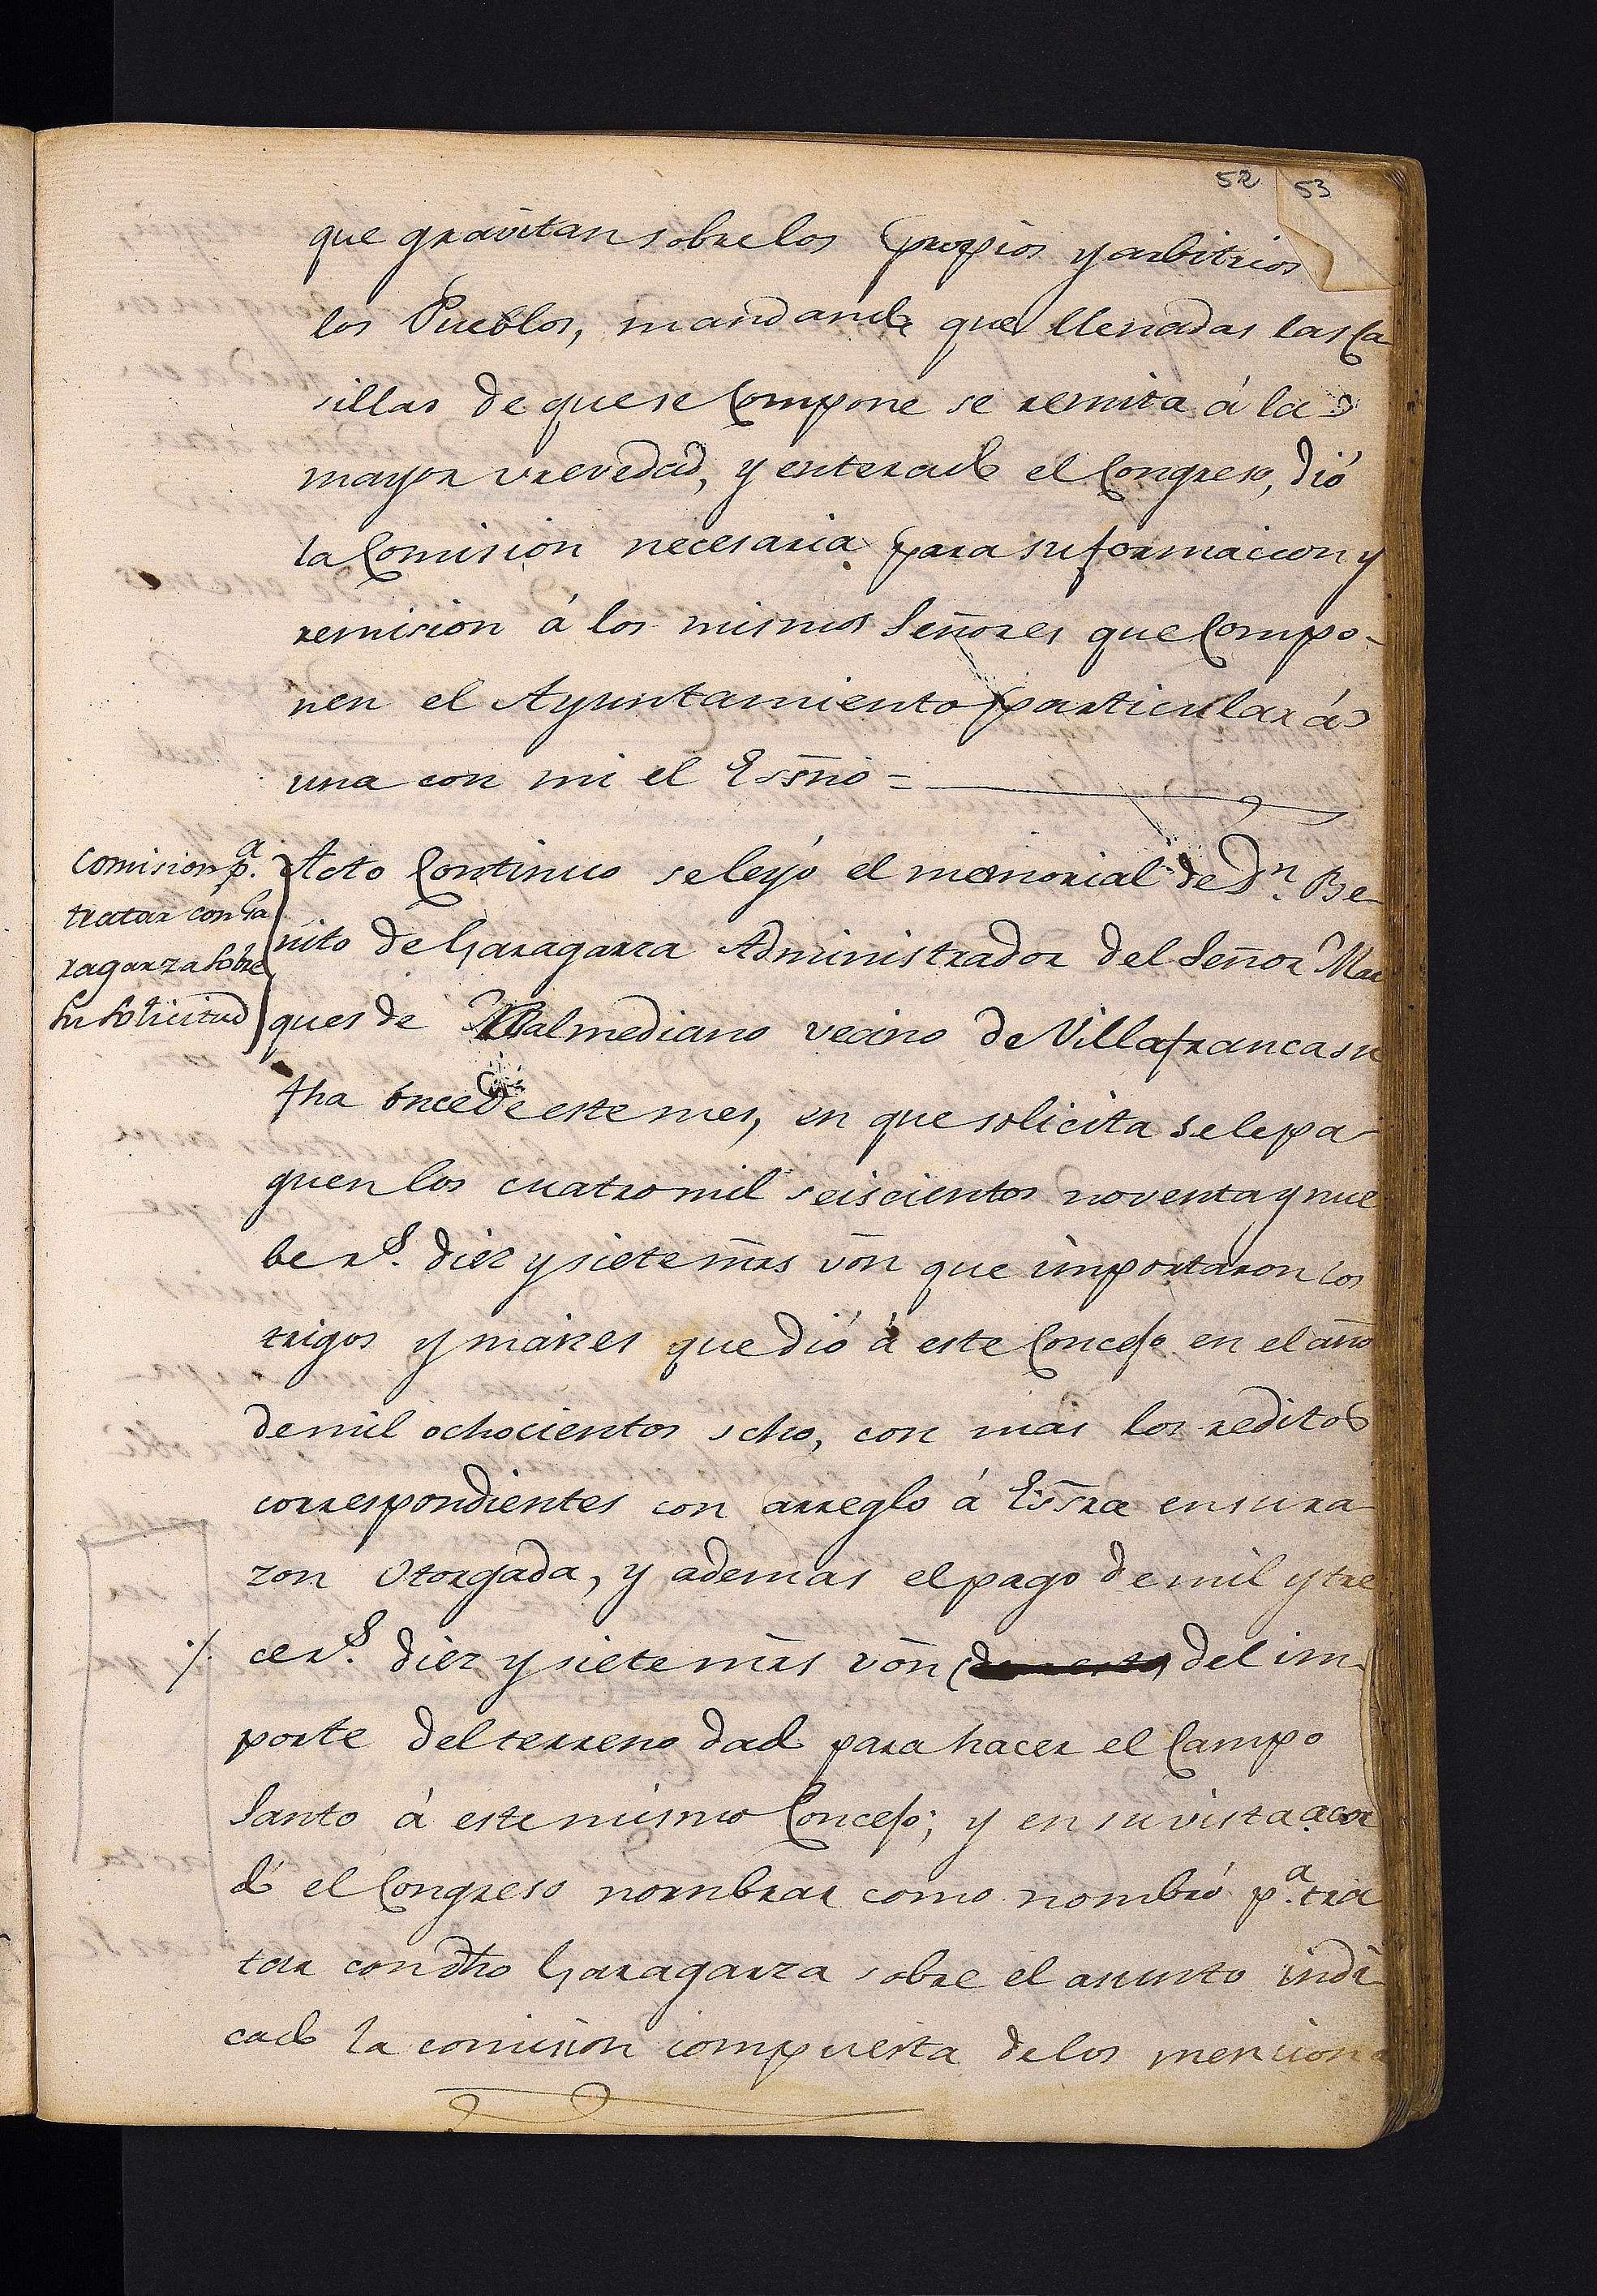 52 53
que gravitan sobre los propios y arbitrios
los Pueblos, mandando que llenadas las Ca
sillas de que se Compone se remita á la
mayor vrevedad, y enterado el Congreso, dió
la Comision necesaria para su formacion y
remision á los mismos Señores que Compo-
nen el Ayuntamiento particular á
una con mi el Essno =
Comision pa.
tratar con Ga
ragarza sobre
su solicitud
Acto Continuo se leyó el memorial de Dn. Be
nito de Garagarza Administrador del Señor Mar
ques de Valmediano vecino de Villafranca su
fha once de este mes, en que solicita se le pa-
guen los cuatro mil seiscientos noventa y nue
be rs. diez y siete mrs von que importaron los
trigos y maizes que dió á este Concejo en el año
de mil ochocientos ocho, con mas los reditos
correspondientes con arreglo á Essra en su ra-
zon otorgada, y ademas el pago de mil y tre
./. ce rs. diez y siete mrs von del im-
porte del terreno dado para hacer el Campo
Santo á este mismo Concejo; y en su vista acor
dó el Congreso nombrar como nombró pa. tra
tar con dho Garagarza sobre el asunto indi
cado la comision compuesta de los menciona